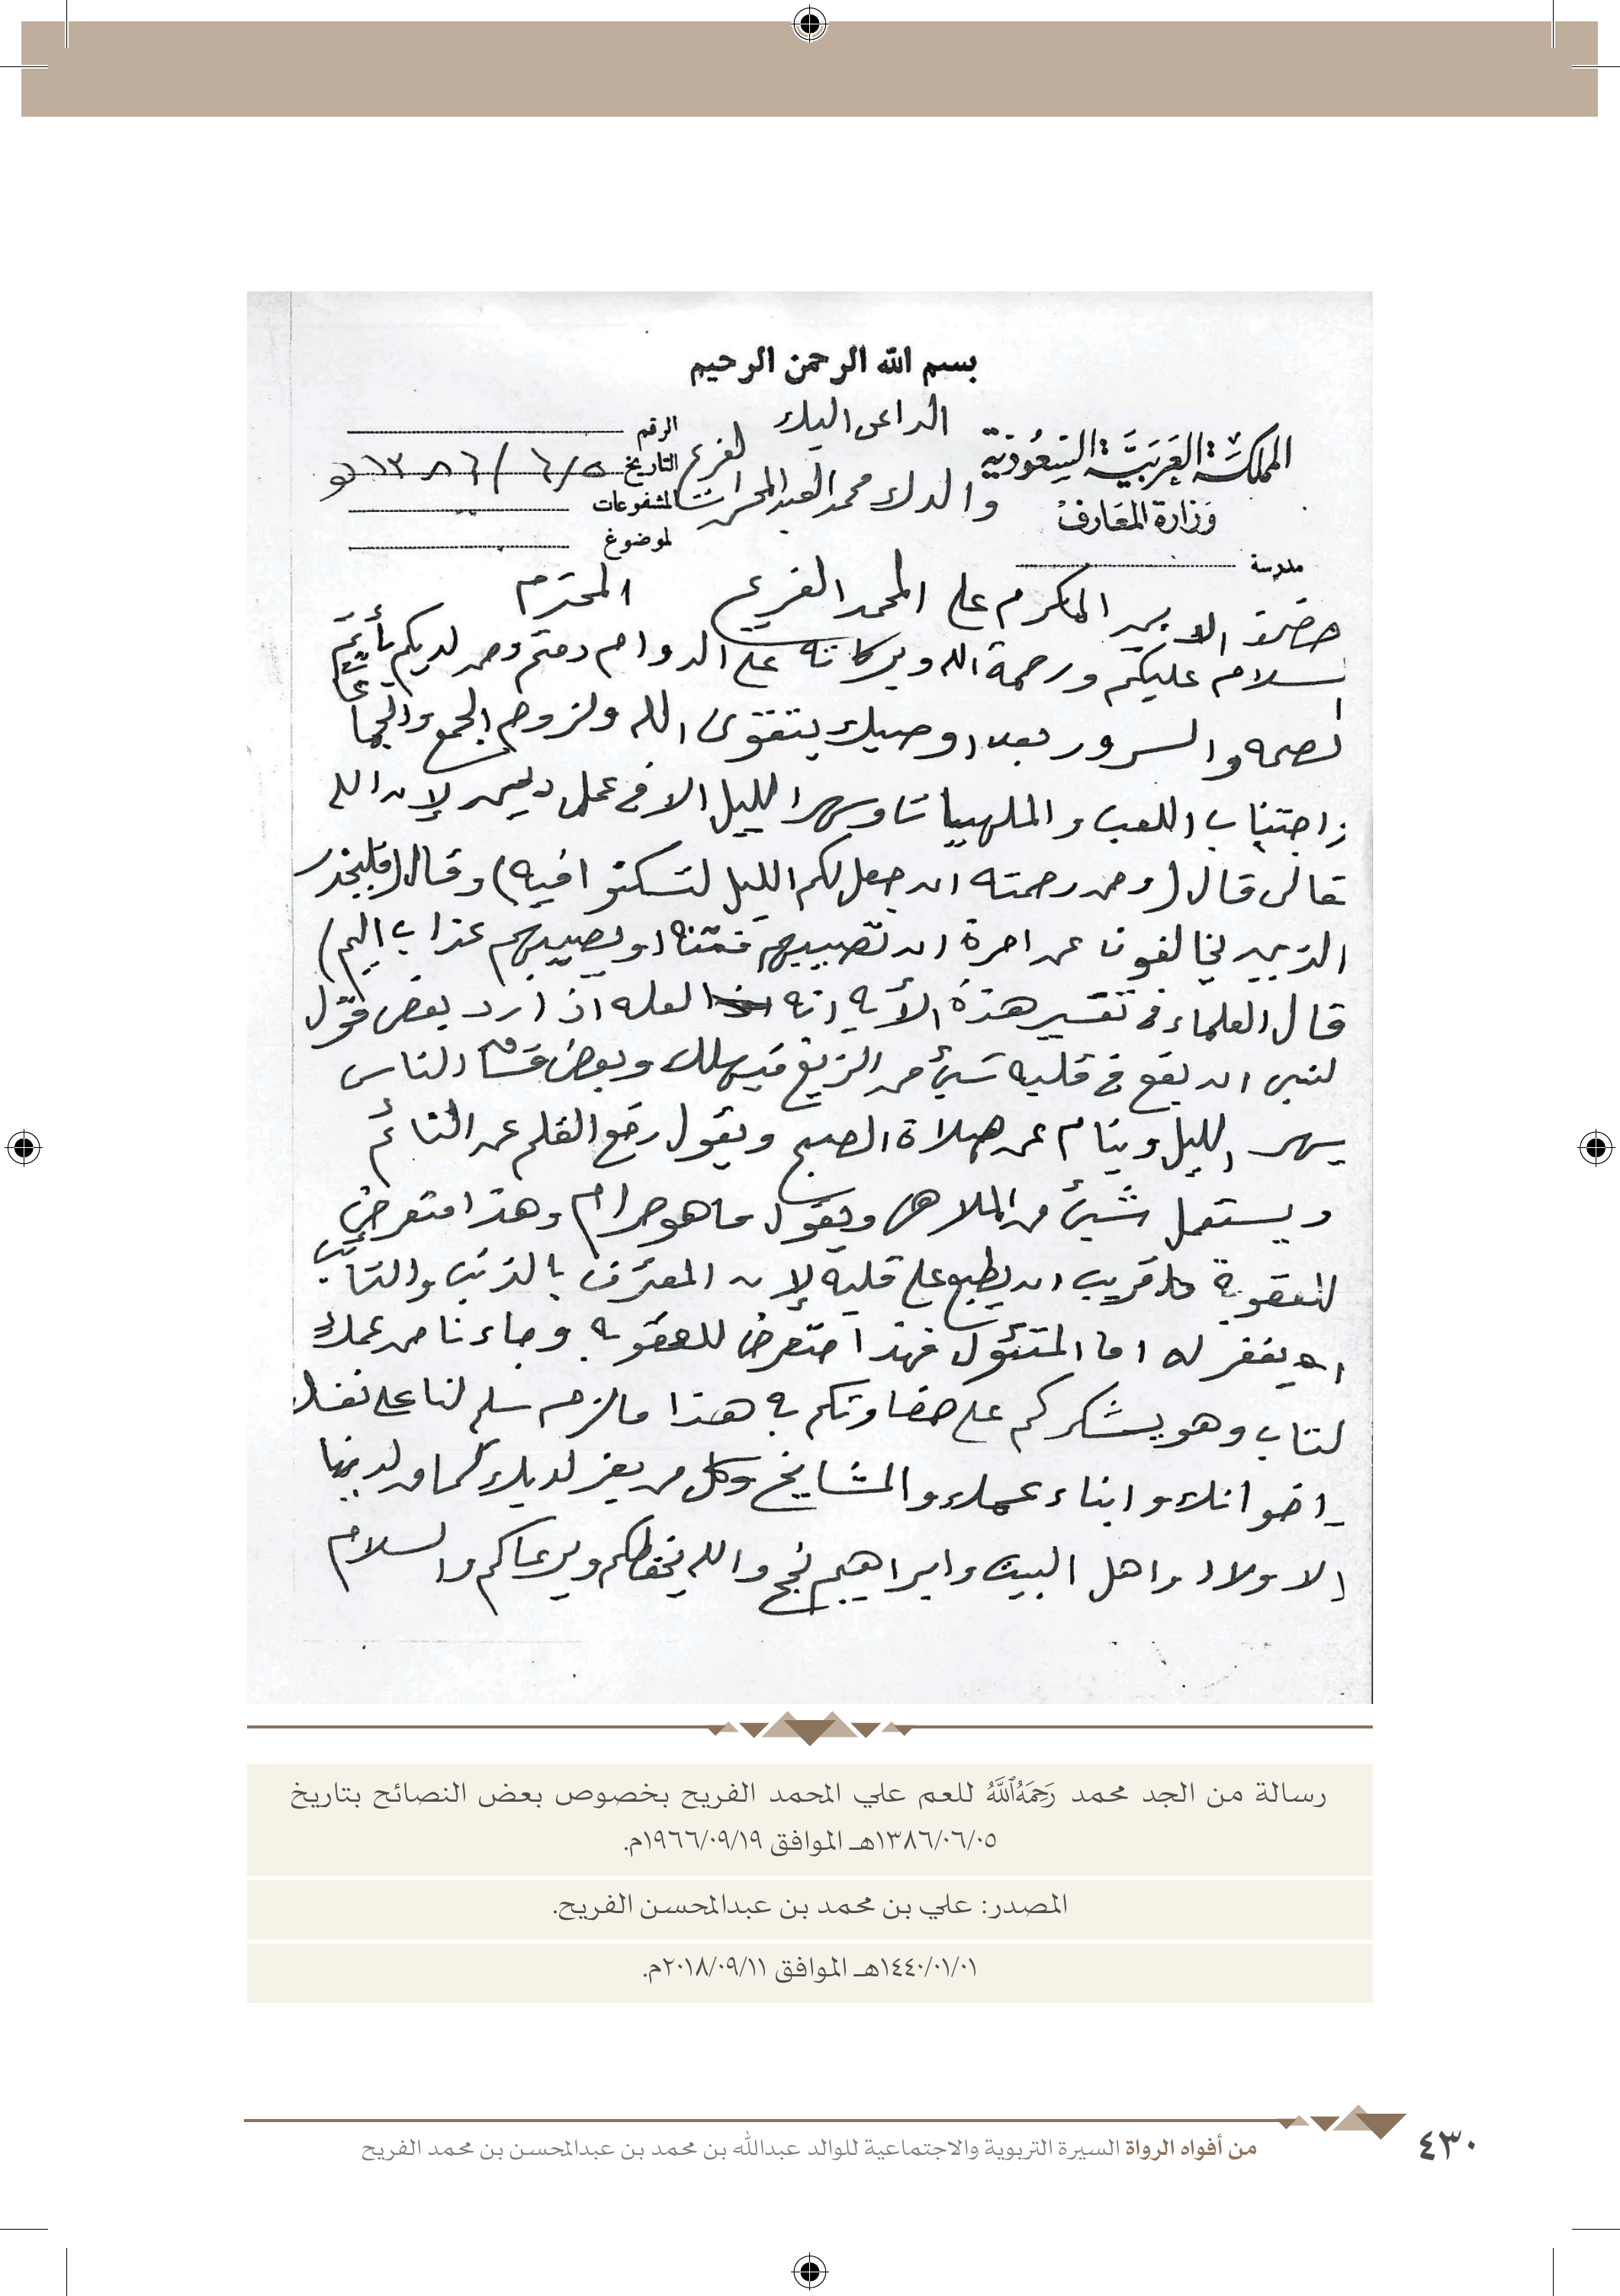 بسم الله الرحمن الرحيم
الداعي اليك
المملكة العربية السعودية
وزارة المعارف
مدرسة
والدك محمد العبدالمحسن الفريح
الرقم
التاريخ ٥/٦/١٣٨٦هـ
المشفوعات
الموضوع
حضرة الابن المكرم علي المحمد الفريح المحترم
السلام عليكم ورحمة الله وبركاته على الدوام دمتم ومن لديكم بأتم
الصحه والسرور بعد اوصيك بتقوى الله ولزوم الجمع والجماعة
واجتناب اللعب والملهيات وسهر الليل الا في عمل ديني لإن الله
تعالى قال (ومن رحمته ان جعل لكم الليل لتسكنوا فيه) وقال (فليحذر
الذين يخالفون عن امرة ان تصيبهم فتنة او يصيبهم عذاب اليم)
قال العلماء في تفسير هذة الأيه انه لعله اذا رد بعض قول
النبي ان يقع في قلبه شيء من الزيغ فيهلك وبعض فساد الناس
يسهر الليل وينام عن صلاة الصبح ويقول رفع القلم عن النائم
ويستعمل شيء من الملاهي ويقول ما هو حرام وهذا متعرض
للعقوبة قريب ان يطبع على قلبه لإن المعترف بالذنب والتائب
يغفر له اما المتئول فهذا متعرض للعقوبه وجاءنا من عمك
كتاب وهو يشكركم على حفاوتكم به هذا مالزم سلم لنا على نفسك
اخوانك وابناء عمك والمشايخ وكل من يعز لديك كما من لدينا
الاولاد واهل البيت وابراهيم نجح والله يحفظكم ويرعاكم والسلام
رسالة من الجد محمد رَحِمَهُ ٱللَّهُ للعم علي المحمد الفريح بخصوص بعض النصائح بتاريخ
١٣٨٦/٠٦/٠٥هـ الموافق ١٩٦٦/٠٩/١٩م.
المصدر: علي بن محمد بن عبدالمحسن الفريح.
١٤٤٠/٠١/٠١هـ الموافق ٢٠١٨/٠٩/١١م.
من أفواه الرواة السيرة التربوية والاجتماعية للوالد عبدالله بن محمد بن عبدالمحسن بن محمد الفريح
٤٣٠